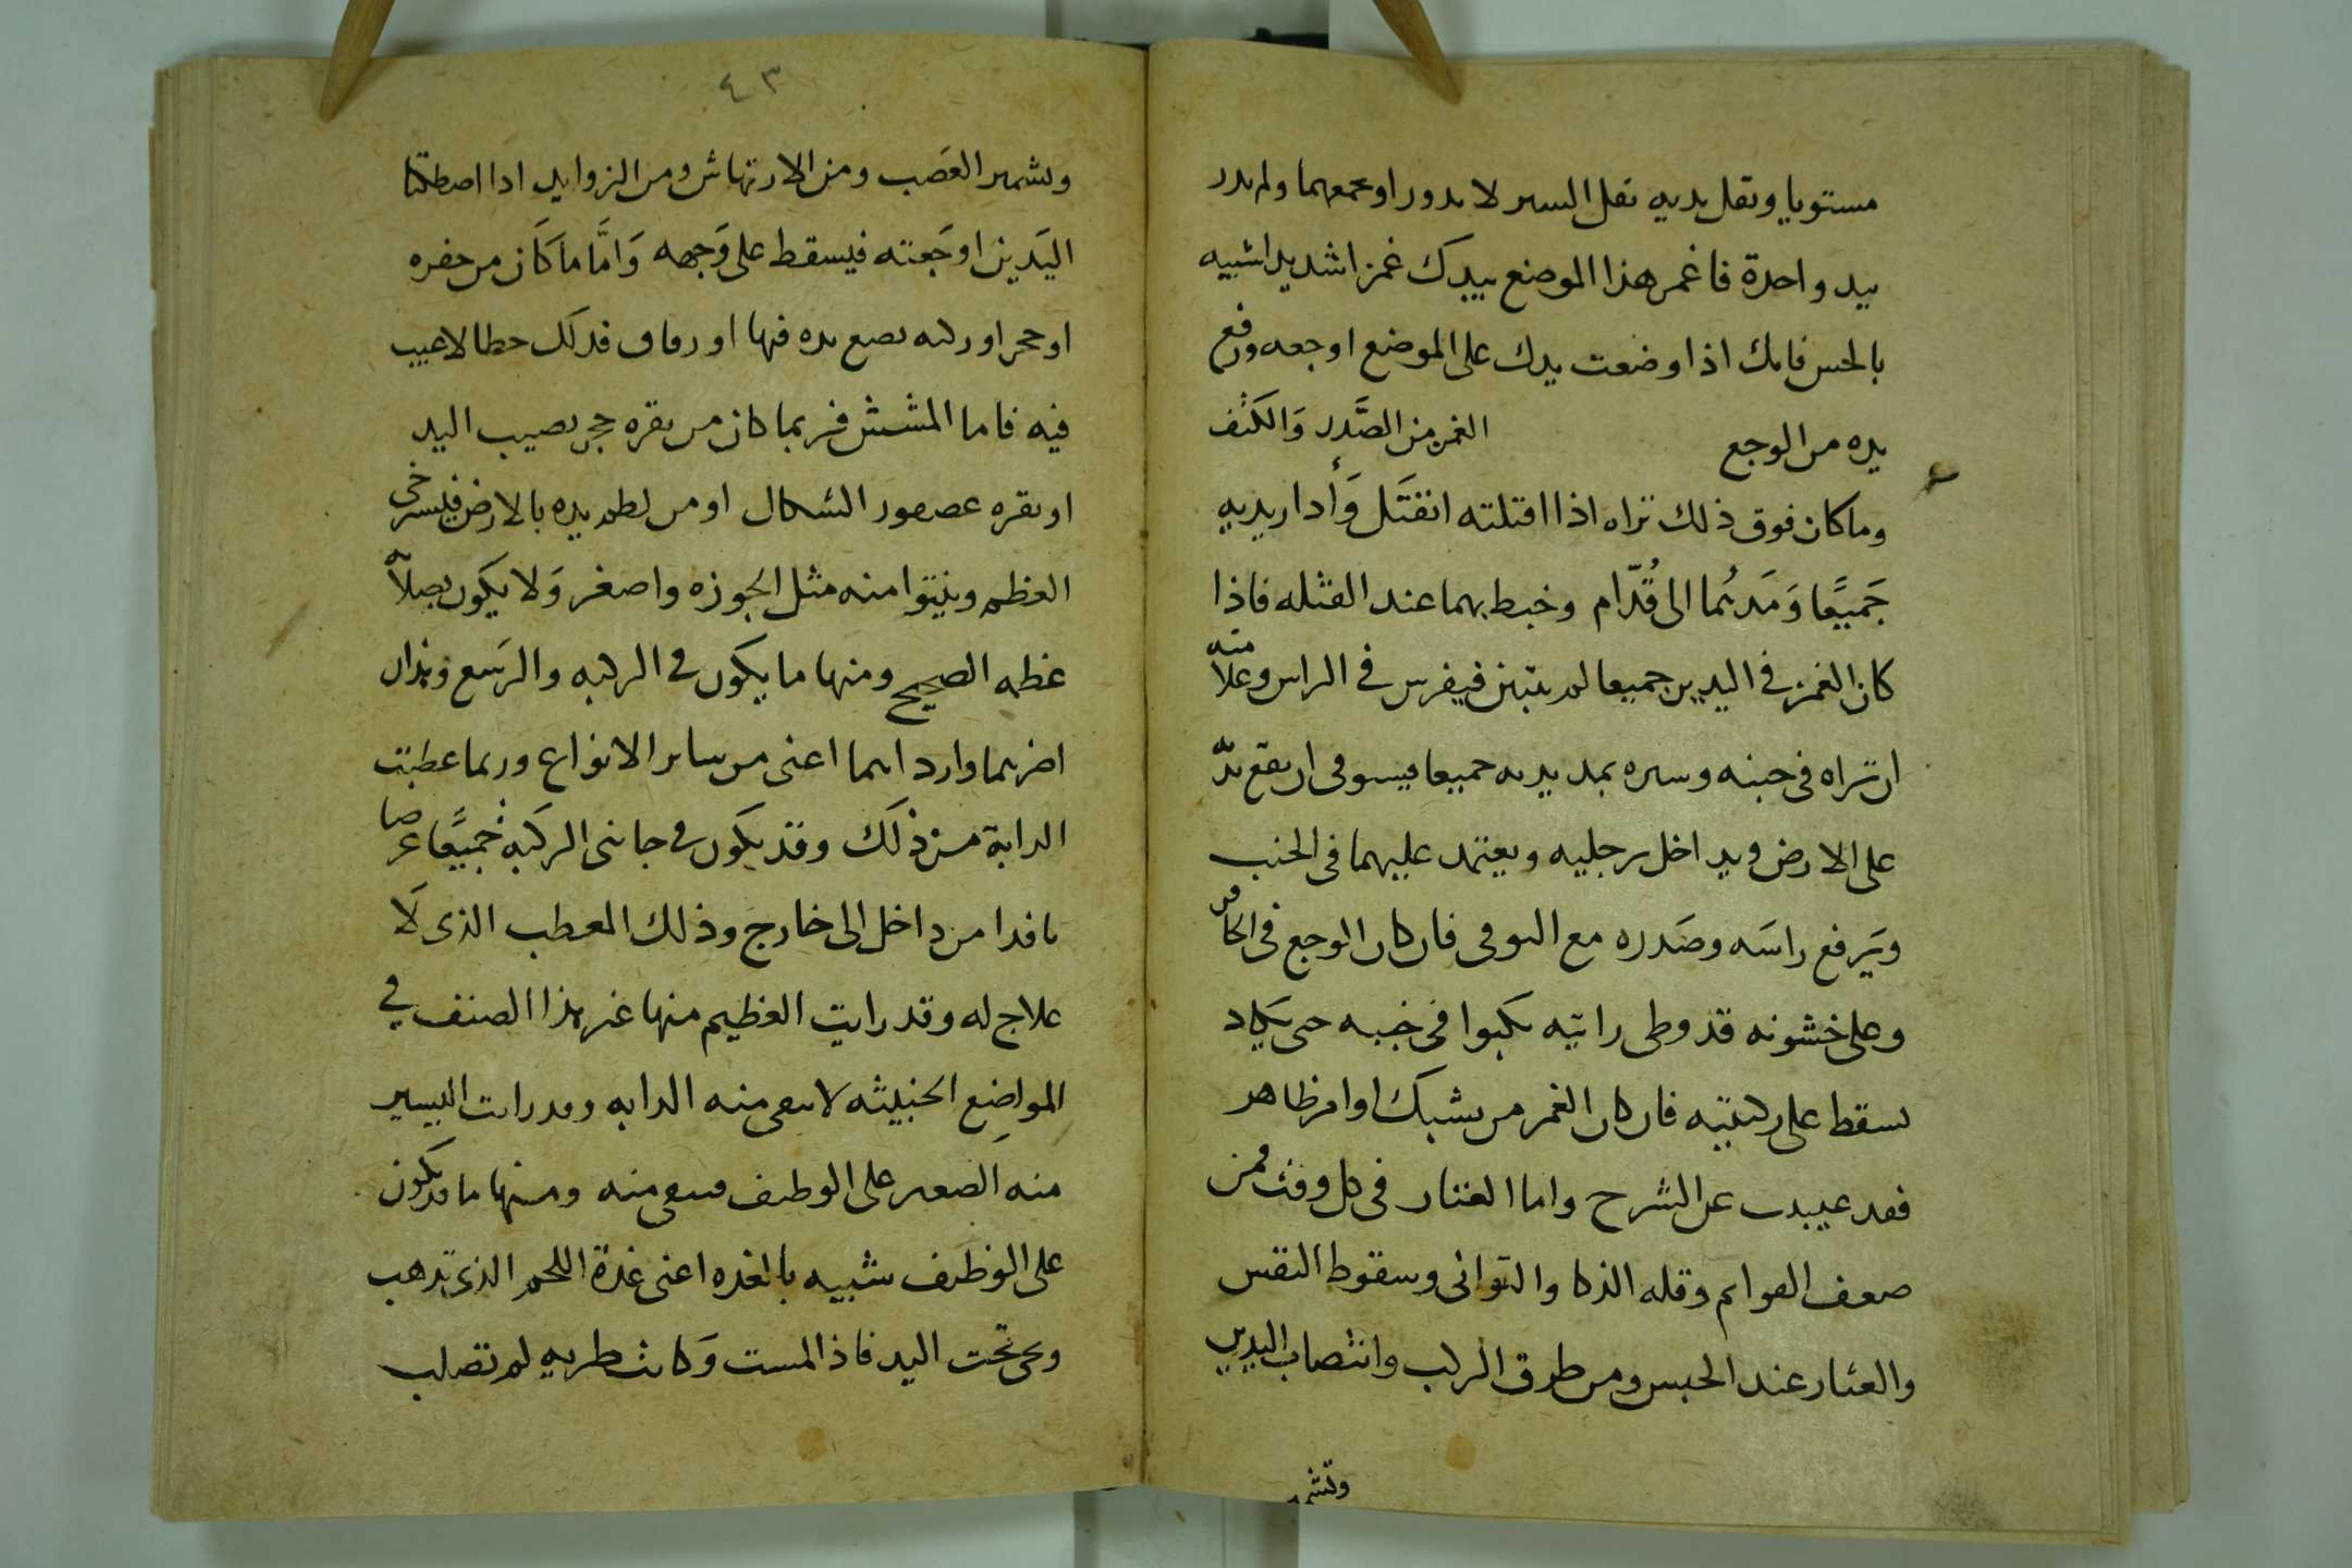 مستويا وىقل يديه ىقل السىر لا ىدور او ىجمعهما ولم ىدر
بيد واحدة فاغمز هذا الموضع بيدك غمزا شديدا شبيه
بالجس فانك اذا وضعت يدك على الموضع اوجعه ورفع
يده من الوجع الغمز من الصَّدر وَالكَتف
وما كان فوق ذلك تراه اذا اقتلته انقتَل وَأدار يديه
جَميعًا وَمَدهُما الى قُدّام وخبط بهما عند الفتله فاذا
كان الغمز في اليدين جميعا لم يتبين فيفرس في الراس وعلامته
ان تراه في جنبه وسيره يمد يديه جميعا فيسوقى ان يقع يدّ
على الارض ويداخل رجليه ويعتمد عليهما في الجنب
ويَرفع راسَه وصَدره مع التوقى فان كان الوجع في الحافر
وعلى خشونه قد وطى رايته يكبوا في خببه حتى يكاد
يسقط على ركبتيه فان كان الغمز من يشبك او امر ظاهر
فقد عىىت عن الشرح واما العثار في كل وقت فمن
ضعف القوائم وقله الذكا والتوانى وسقوط النفس
والعثار عند الحبس ومن طرق الركب وانتصاب اليدين
وتشمر
٤٣
وتشمير العَصب ومن الارتهاش ومن الزوايد اذا اصطكتا
اليَدين اوجَعته فيسقط على وَجهه وَامَّا مَا كَان من حفره
او حجر او ركيه يضع يده فيها او زقاق فذلك خطا لا عيب
فيه فاما المشش فربما كان من نقره حجر يصيب اليد
او نقره عصفور الشكال او من لطمه يده بالارض فيسترخى
العظم وينتوا منه مثل الجوزه واصغر وَلا يكون بصلابه
عظمه الصحيح ومنها ما يكون في الركبه والرسغ وهذان
اضربهما واردا انهما اعنى من ساير الانواع وربما عطبت
الدابة من ذلك وقد يكون في جانبى الركبه جَميعًا عرضا
نافدا من داخل الى خارج وذلك المعطب الذى لَا
علاج له وقد رايت العظيم منها غير هذا الصنف في
المواضع الخبيثه لا يبقى منه الدابه وقد رايت اليسير
منه الصغير على الوظيف فيبقى منه ومنها ما قد يكون
على الوظيف شبيه بالغده اعنى غدة اللحم الذى تذهب
وتجى تحت اليد فاذا لمست وَكانت طريه لم تصلب